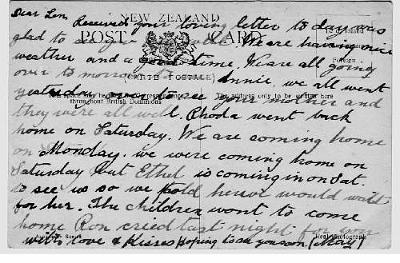 Dear Len Received your loving letter to day was
NEW ZEALAND
glad to
POST CARD
We are having nice
weather and a good time. We are all going
(CARTE POSTALE)
over to morrow to Annie, we all went
yesterday to see your mother and
throughout British Dominions
The address only to be written here
they were all well Rhoda went back
home on Saturday. We are coming home
on Monday. we were coming home on
Saturday but Ethel is coming in on Sat.
to see us so we told her we would wait
for her. The children want to come
home Ron cried last night for you
with love & Kisses Hoping to see you soon (May)